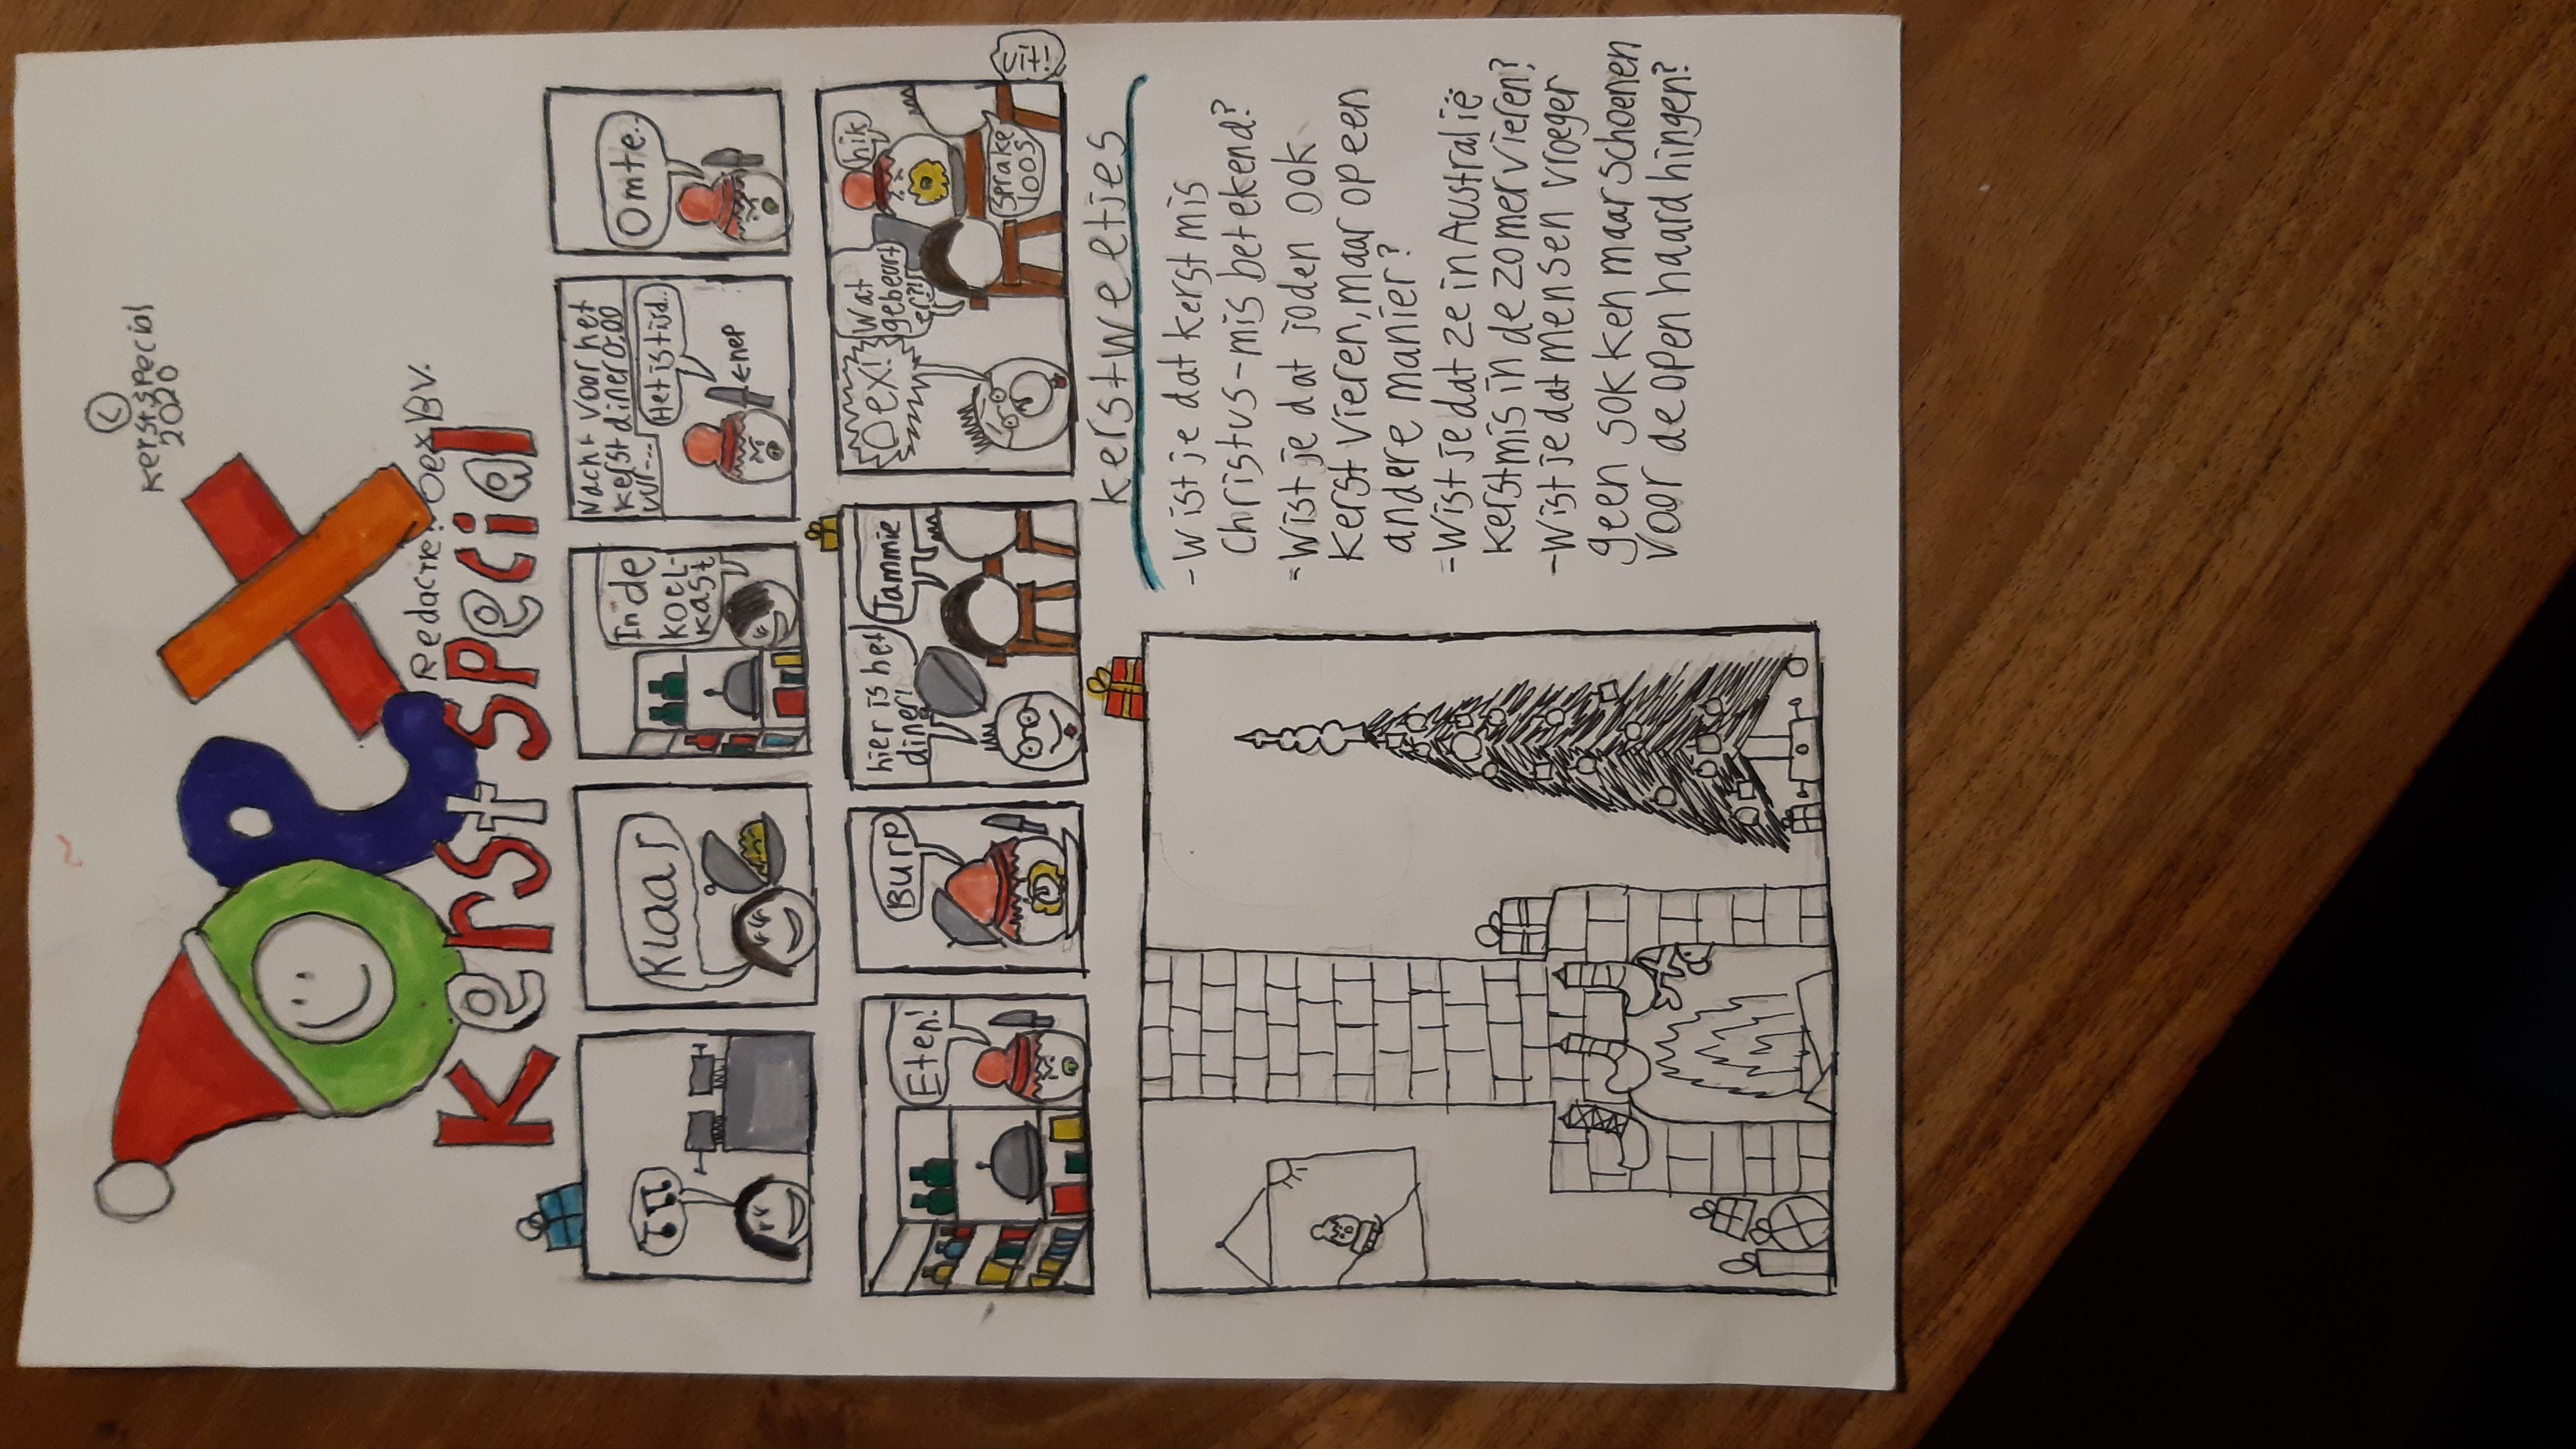 ©
Kerstspecial
2020
oex
Redactie: Oex BV.
Kerstspecial
Klaar
In de
koel-
kast
Nacht voor het
kerstdiner 0:00
uur-...
Het is tijd..
←nep
Omte..
Eten!
Burp
hier is het
diner!
Jammie
Oex!
Wat
gebeurt
er?!
hik
Sprake
loos
kerstweetjes
-Wist je dat kerstmis
Christus-mis betekend?
-Wist je dat joden ook
kerst vieren, maar op een
andere manier?
-Wist je dat ze in Australië
kerstmis in de zomer vieren?
-Wist je dat mensen vroeger
geen sokken maar schoenen
voor de open haard hingen?